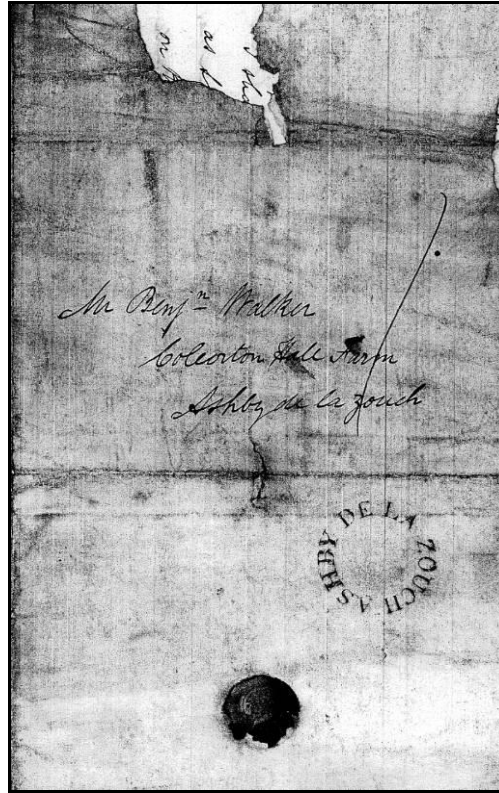 s sha
as
on
Mr Benjn Walker
Coleorton Hall Farm
Ashby de la Zouch
ASHBY DE LA ZOUCH